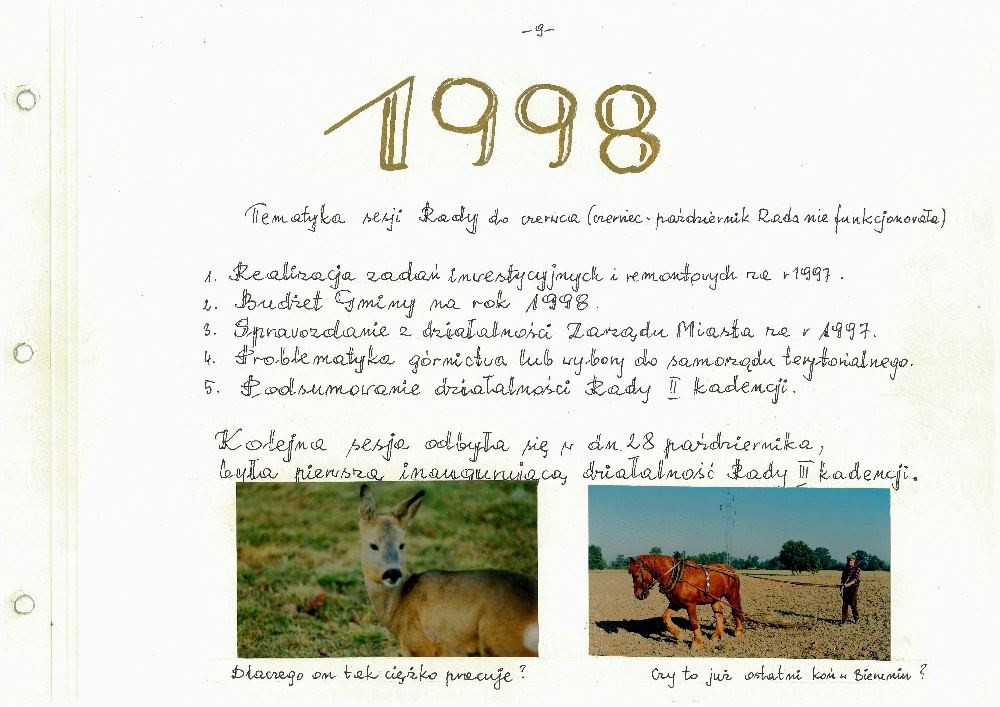 -9-
1998
Tematyka sesji Rady do czerwca (czerwiec - październik Rada nie funkcjonowała)
1. Realizacja zadań inwestycyjnych i remontowych za r 1997.
2. Budżet Gminy na rok 1998.
3. Sprawozdanie z działalności Zarządu Miasta za r 1997.
4. Problematyka górnictwa lub wybory do samorządu terytorialnego.
5. Podsumowanie działalności Rady II kadencji.
Kolejna sesja odbyła się w dn. 28 października,
była pierwszą inaugurującą działalność Rady III kadencji.
Dlaczego on tak ciężko pracuje?
Czy to już ostatni koń w Bieruniu?